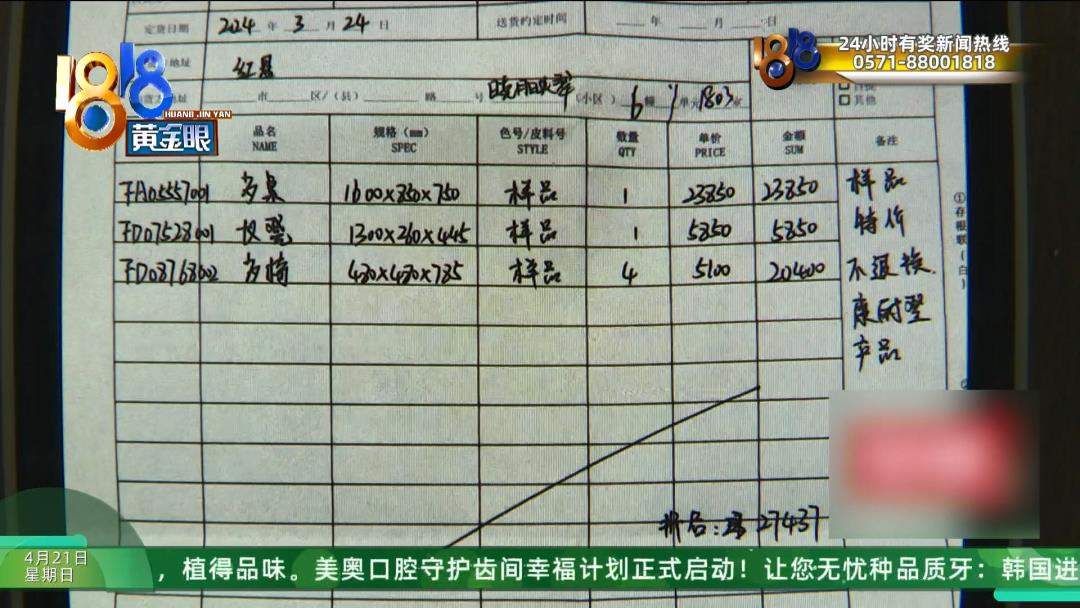 定货日期 2024 年 3 月 24 日 送货约定时间 年 月 日
24小时有奖新闻热线
0571-88001818
1818
HUANG JIN YAN
黄金眼
地址
市 区/(县) 路 号 (小区) 6 幢 1 单元 1803 室
其他
品名 规格(mm) 色号/皮料号 数量 单价 金额 备注
NAME SPEC STYLE QTY PRICE SUM
FA05557001 1600×850×750 样品 1 23850 23850 样品
FD07528001 1300×360×445 样品 1 5850 5850 特价
FD08768002 480×480×785 样品 4 5100 20400 不退换
产品
①存根联(白)
折后: 27437
4月21日
星期日
，植得品味。美奥口腔守护齿间幸福计划正式启动！让您无忧种品质牙：韩国进